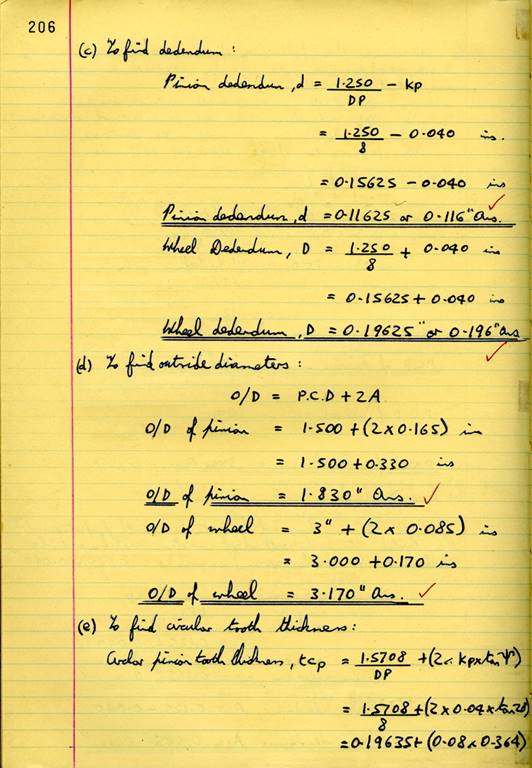 206
(c) To find dedendum :
Pinion dedendum, d = 1.250/DP - kp
= 1.250/8 - 0.040 ins.
= 0.15625 - 0.040 ins
Pinion dedendum, d = 0.11625 or 0.116" Ans.
Wheel Dedendum, D = 1.250/8 + 0.040 ins
= 0.15625 + 0.040 ins
Wheel dedendum, D = 0.19625" or 0.196" Ans
(d) To find outside diameters :
O/D = P.C.D + 2A
O/D of pinion = 1.500 + (2 x 0.165) in
= 1.500 + 0.330 ins
O/D of pinion = 1.830" Ans.
O/D of wheel = 3" + (2 x 0.085) is
= 3.000 + 0.170 is
O/D of wheel = 3.170" Ans.
(e) To find circular tooth thickness :
Circular pinion tooth thickness, tcp = 1.5708/DP + (2 x kp x tan ψ)
= 1.5708/8 + (2 x 0.04 x tan 20)
= 0.19635 + (0.08 x 0.364)